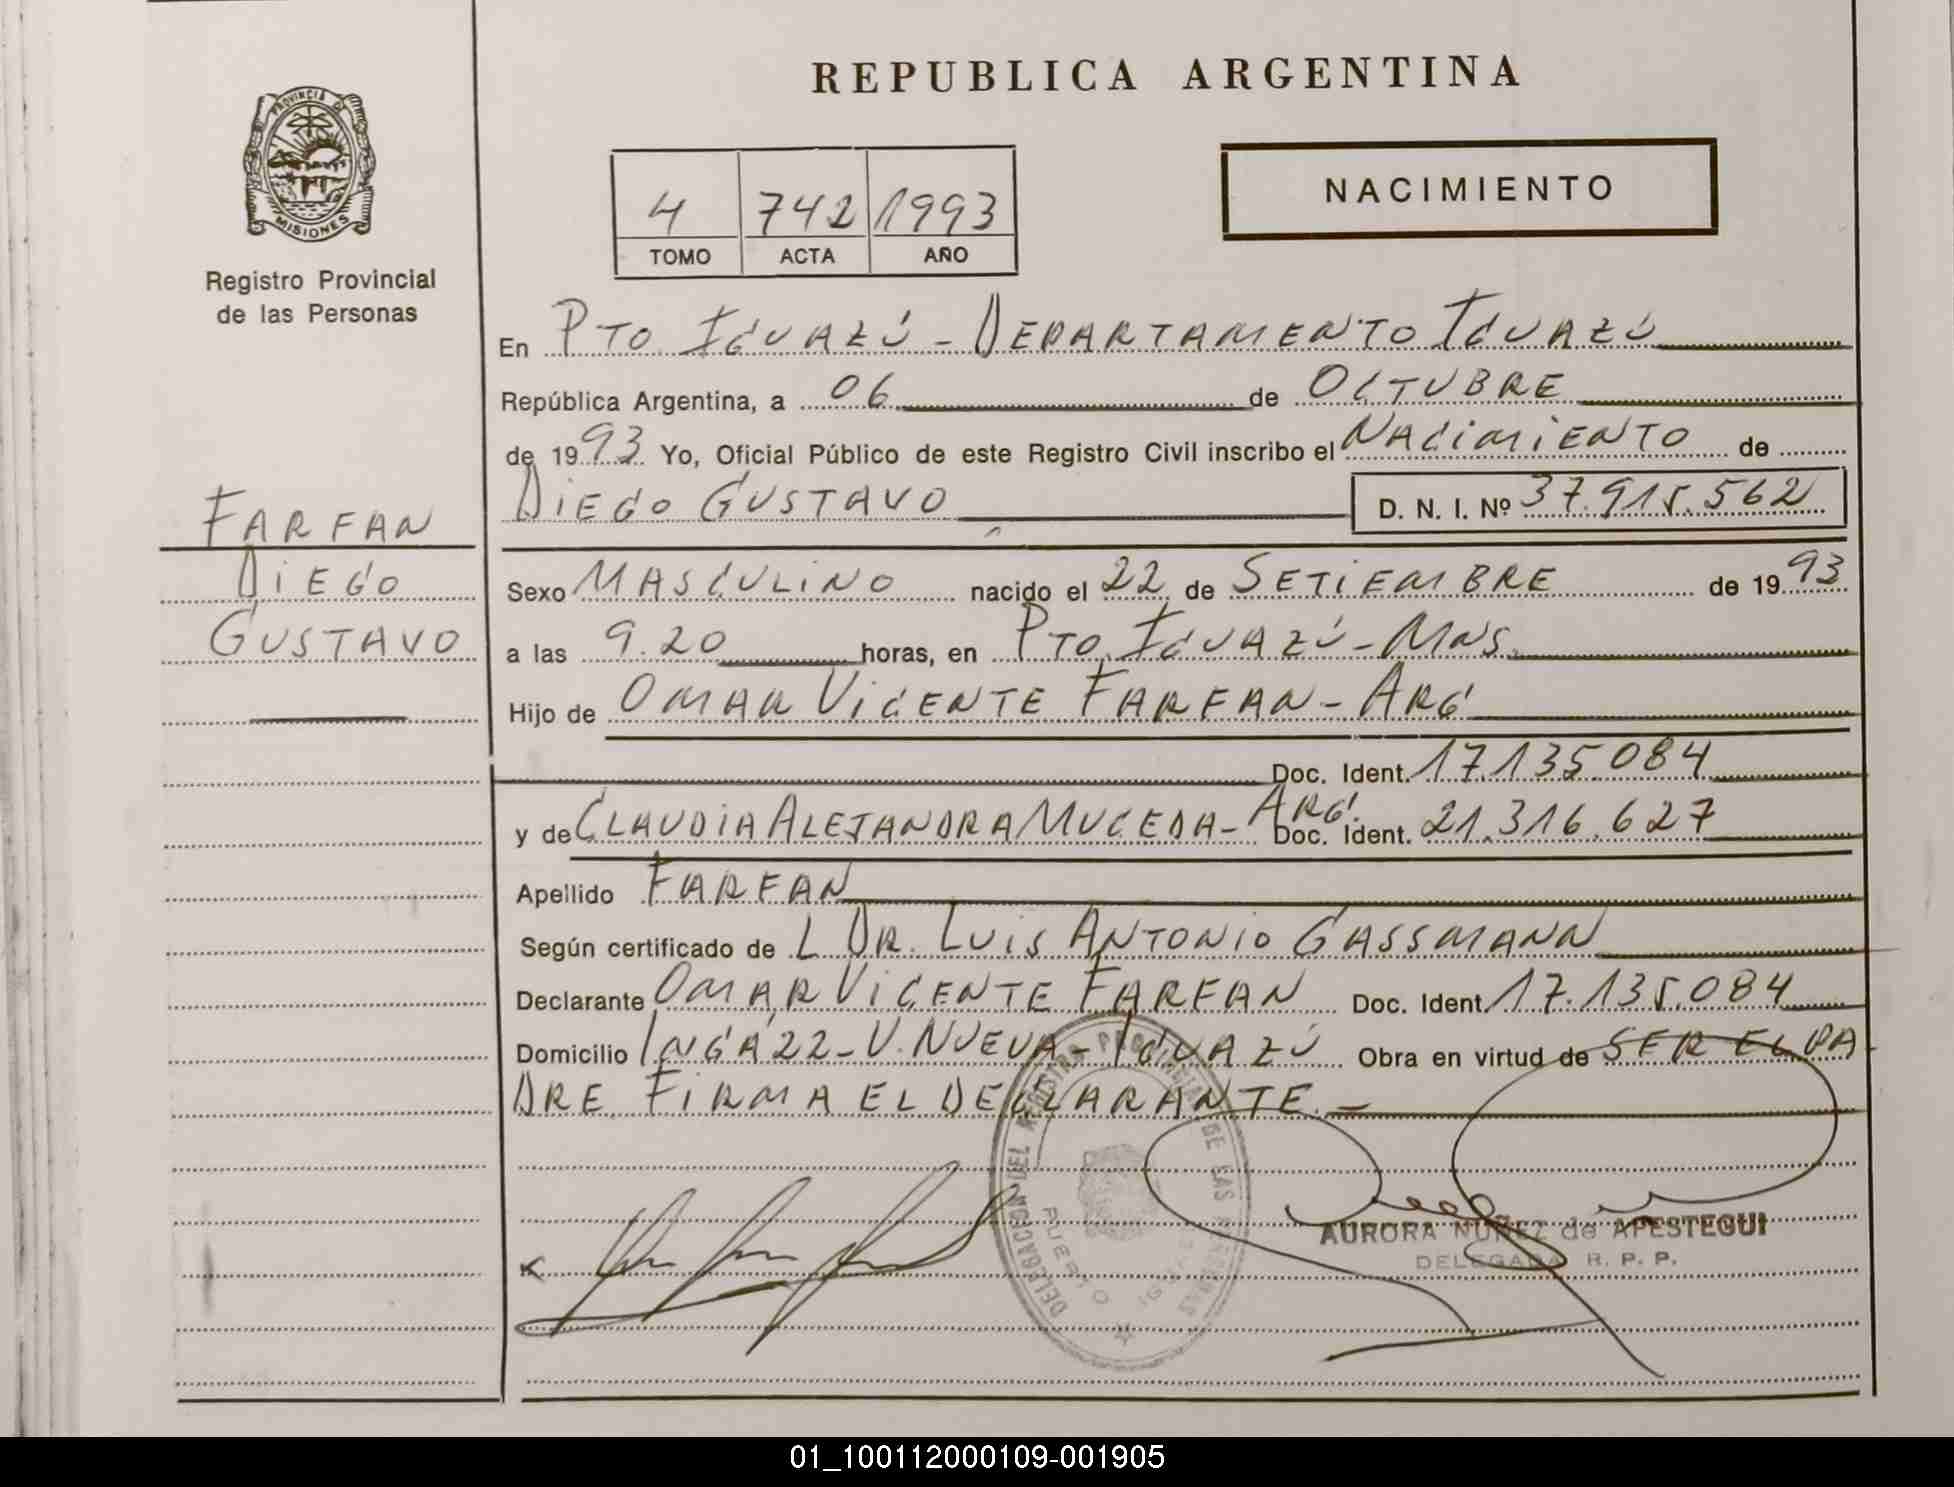 REPUBLICA ARGENTINA
PROVINCIA DE
MISIONES
Registro Provincial
de las Personas
4 742 1993
TOMO ACTA AÑO
NACIMIENTO
En PTO. IGUAZÚ - DEPARTAMENTO IGUAZÚ
República Argentina, a 06 de OCTUBRE
de 1993 Yo, Oficial Público de este Registro Civil inscribo el NACIMIENTO de
DIEGO GUSTAVO D. N. I. Nº 37.915.562
FARFAN
DIEGO
GUSTAVO
Sexo MASCULINO nacido el 22 de SETIEMBRE de 1993
a las 9.20 horas, en PTO. IGUAZÚ - MNS.
Hijo de OMAR VICENTE FARFAN - ARG.
Doc. Ident. 17.135.084
y de CLAUDIA ALEJANDRA MUCEDA - ARG. Doc. Ident. 21.316.627
Apellido FARFAN
Según certificado de L DR. LUIS ANTONIO GASSMANN
Declarante OMAR VICENTE FARFAN Doc. Ident. 17.135.084
Domicilio INGA 22 - V. NUEVA - IGUAZÚ Obra en virtud de SER EL PA
DRE. FIRMA EL DECLARANTE. -
DELEGACION DEL REGISTRO PROVINCIAL DE LAS PERSONAS
PUERTO IGUAZU
AURORA NUÑEZ de APESTEGUI
DELEGADA R. P. P.
01_100112000109-001905